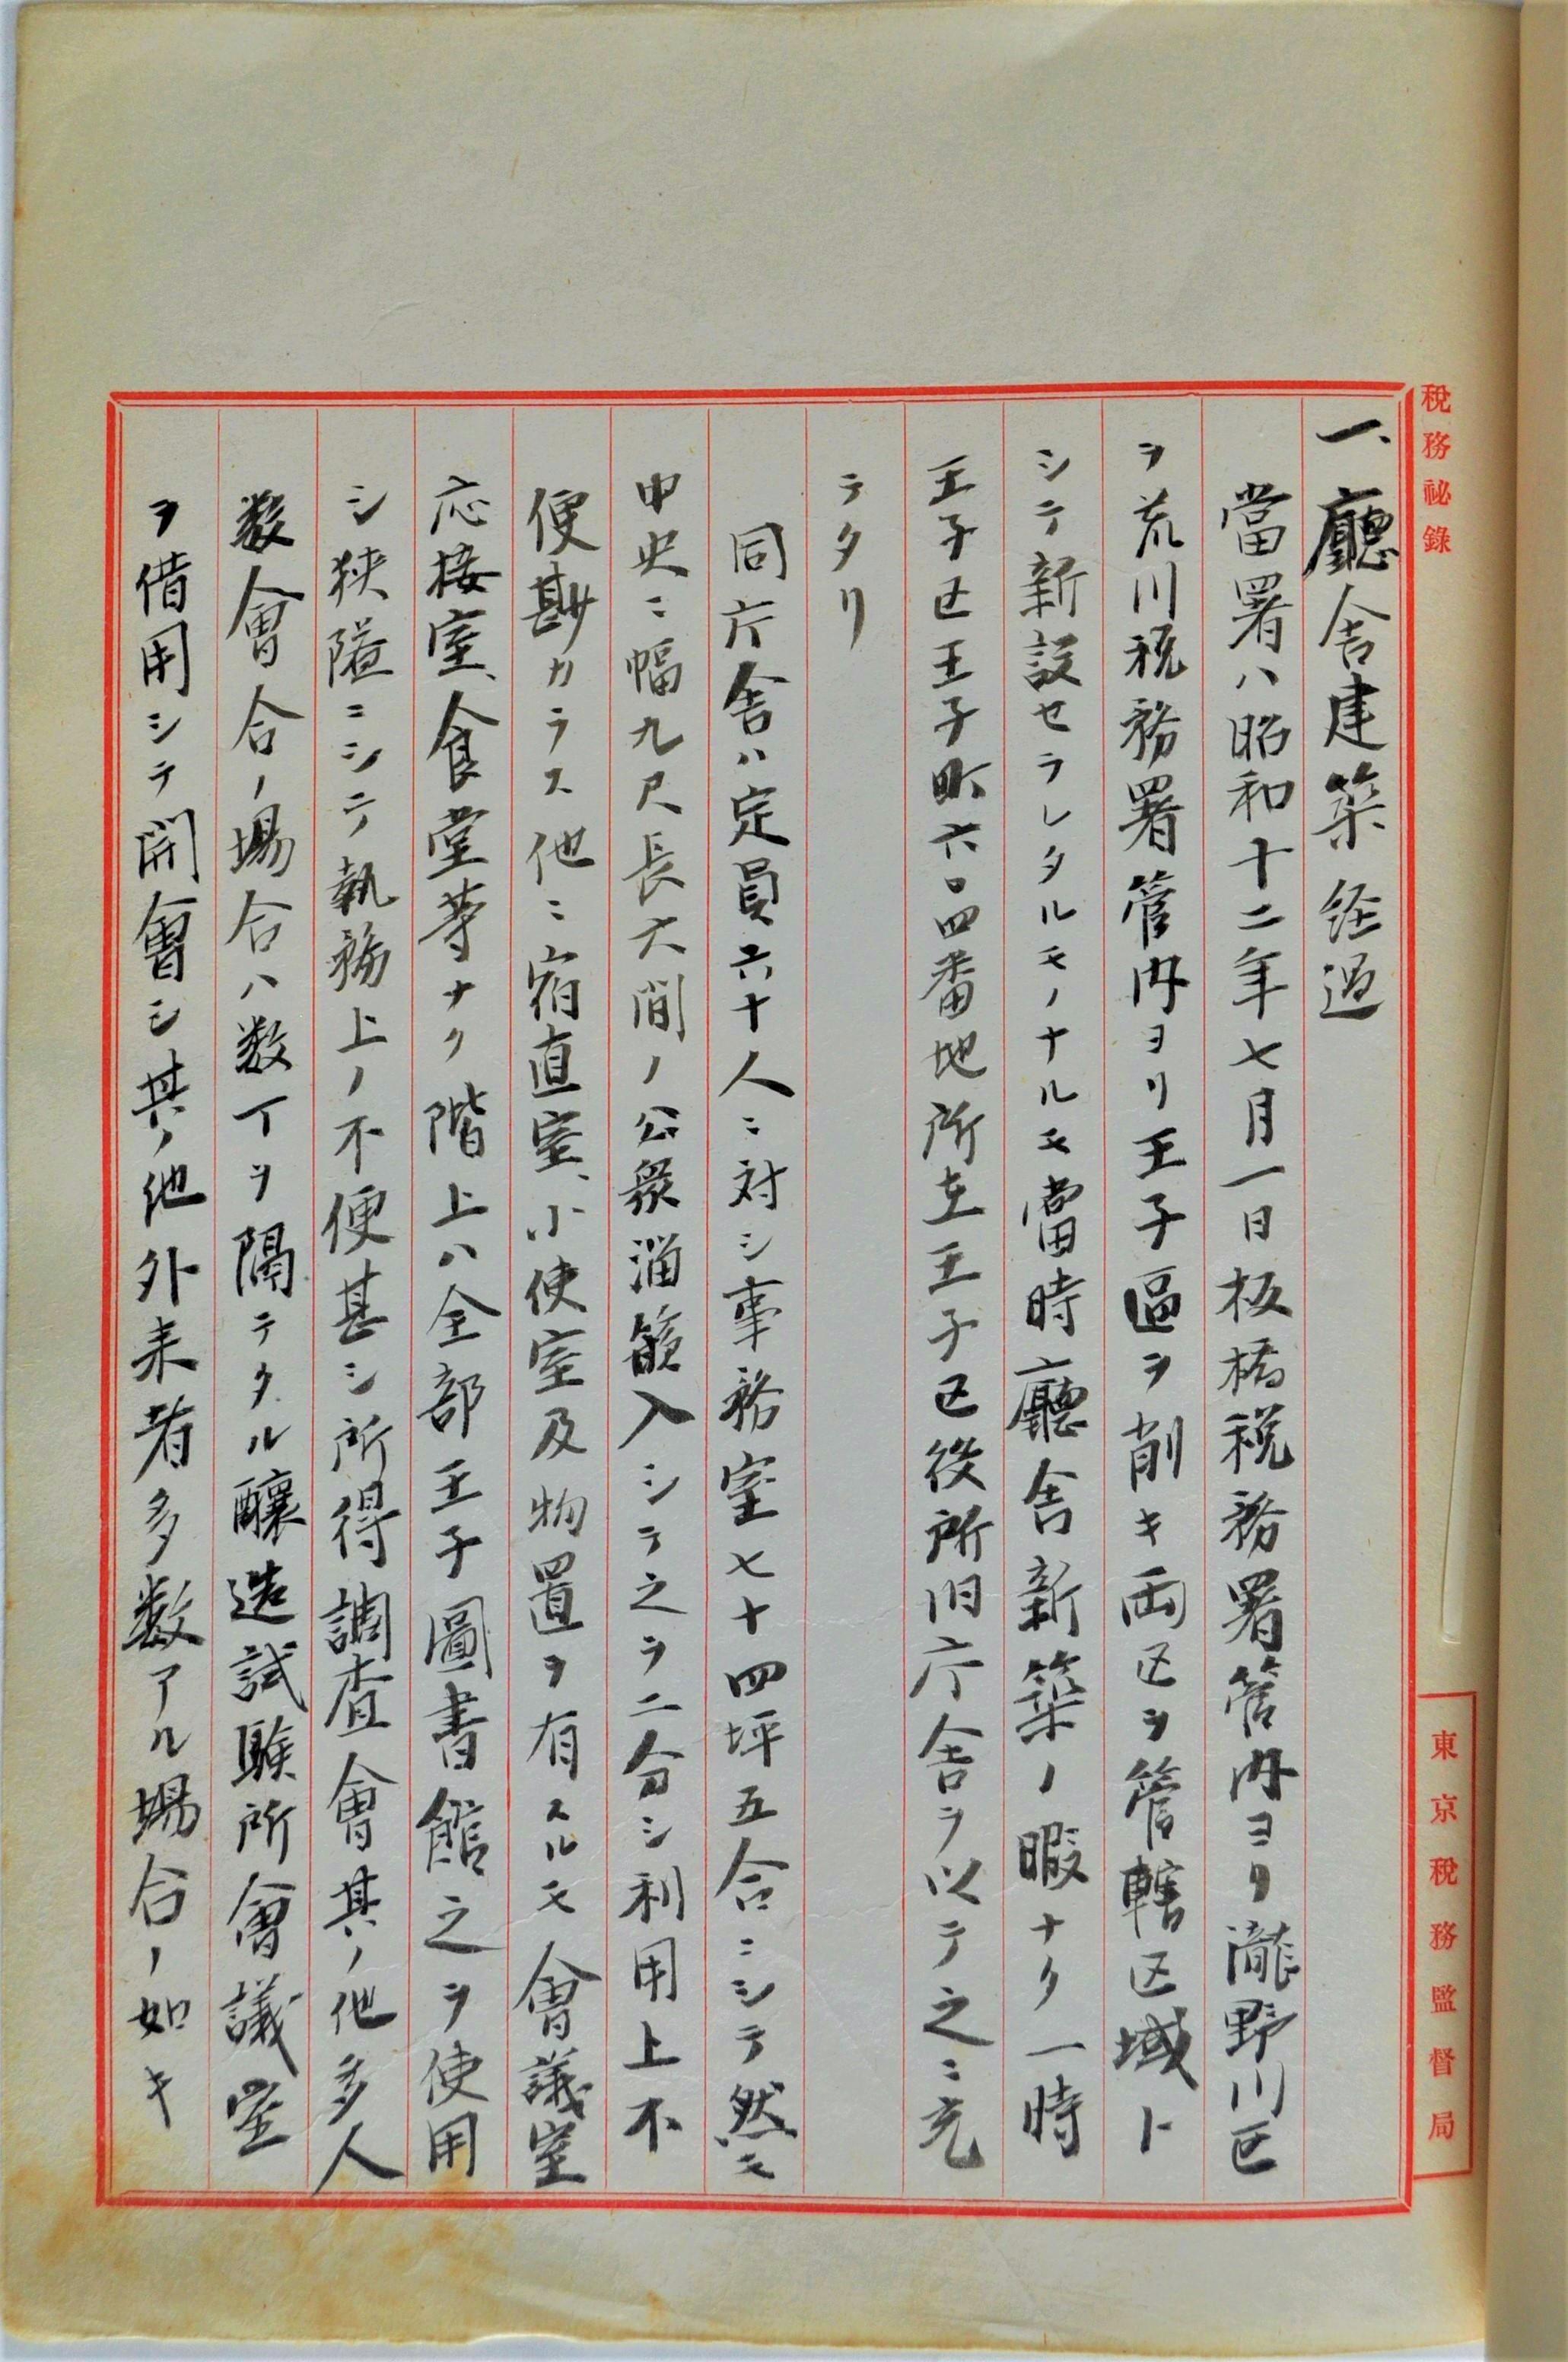 税務祕錄
一、廳舎建築経過
當署ハ昭和十二年七月一日板橋税務署管内ヨリ瀧野川区
ヲ荒川税務署管内ヨリ王子區ヲ削キ両区ヲ管轄区域ト
シテ新設セラレタルモノナルモ當時廳舎新築ノ暇ナク一時
王子区王子町六〇四番地所在王子区役所旧庁舎ヲ以テ之ニ充
テタリ
同庁舎ハ定員六十人ニ対シ事務室七十四坪五合ニシテ然モ
中央ニ幅九尺長六間ノ公衆溜嵌入シテ之ヲ二分シ利用上不
便尠カラス他ニ宿直室、小使室及物置ヲ有スルモ會議室
応接室、食堂等ナク階上ハ全部王子圖書館之ヲ使用
シ狭隘ニシテ執務上ノ不便甚シ所得調査會其ノ他多人
数會合ノ場合ハ数丁ヲ隔テタル釀造試験所會議室
ヲ借用シテ開會シ其ノ他外来者多数アル場合ノ如キ
東京税務監督局